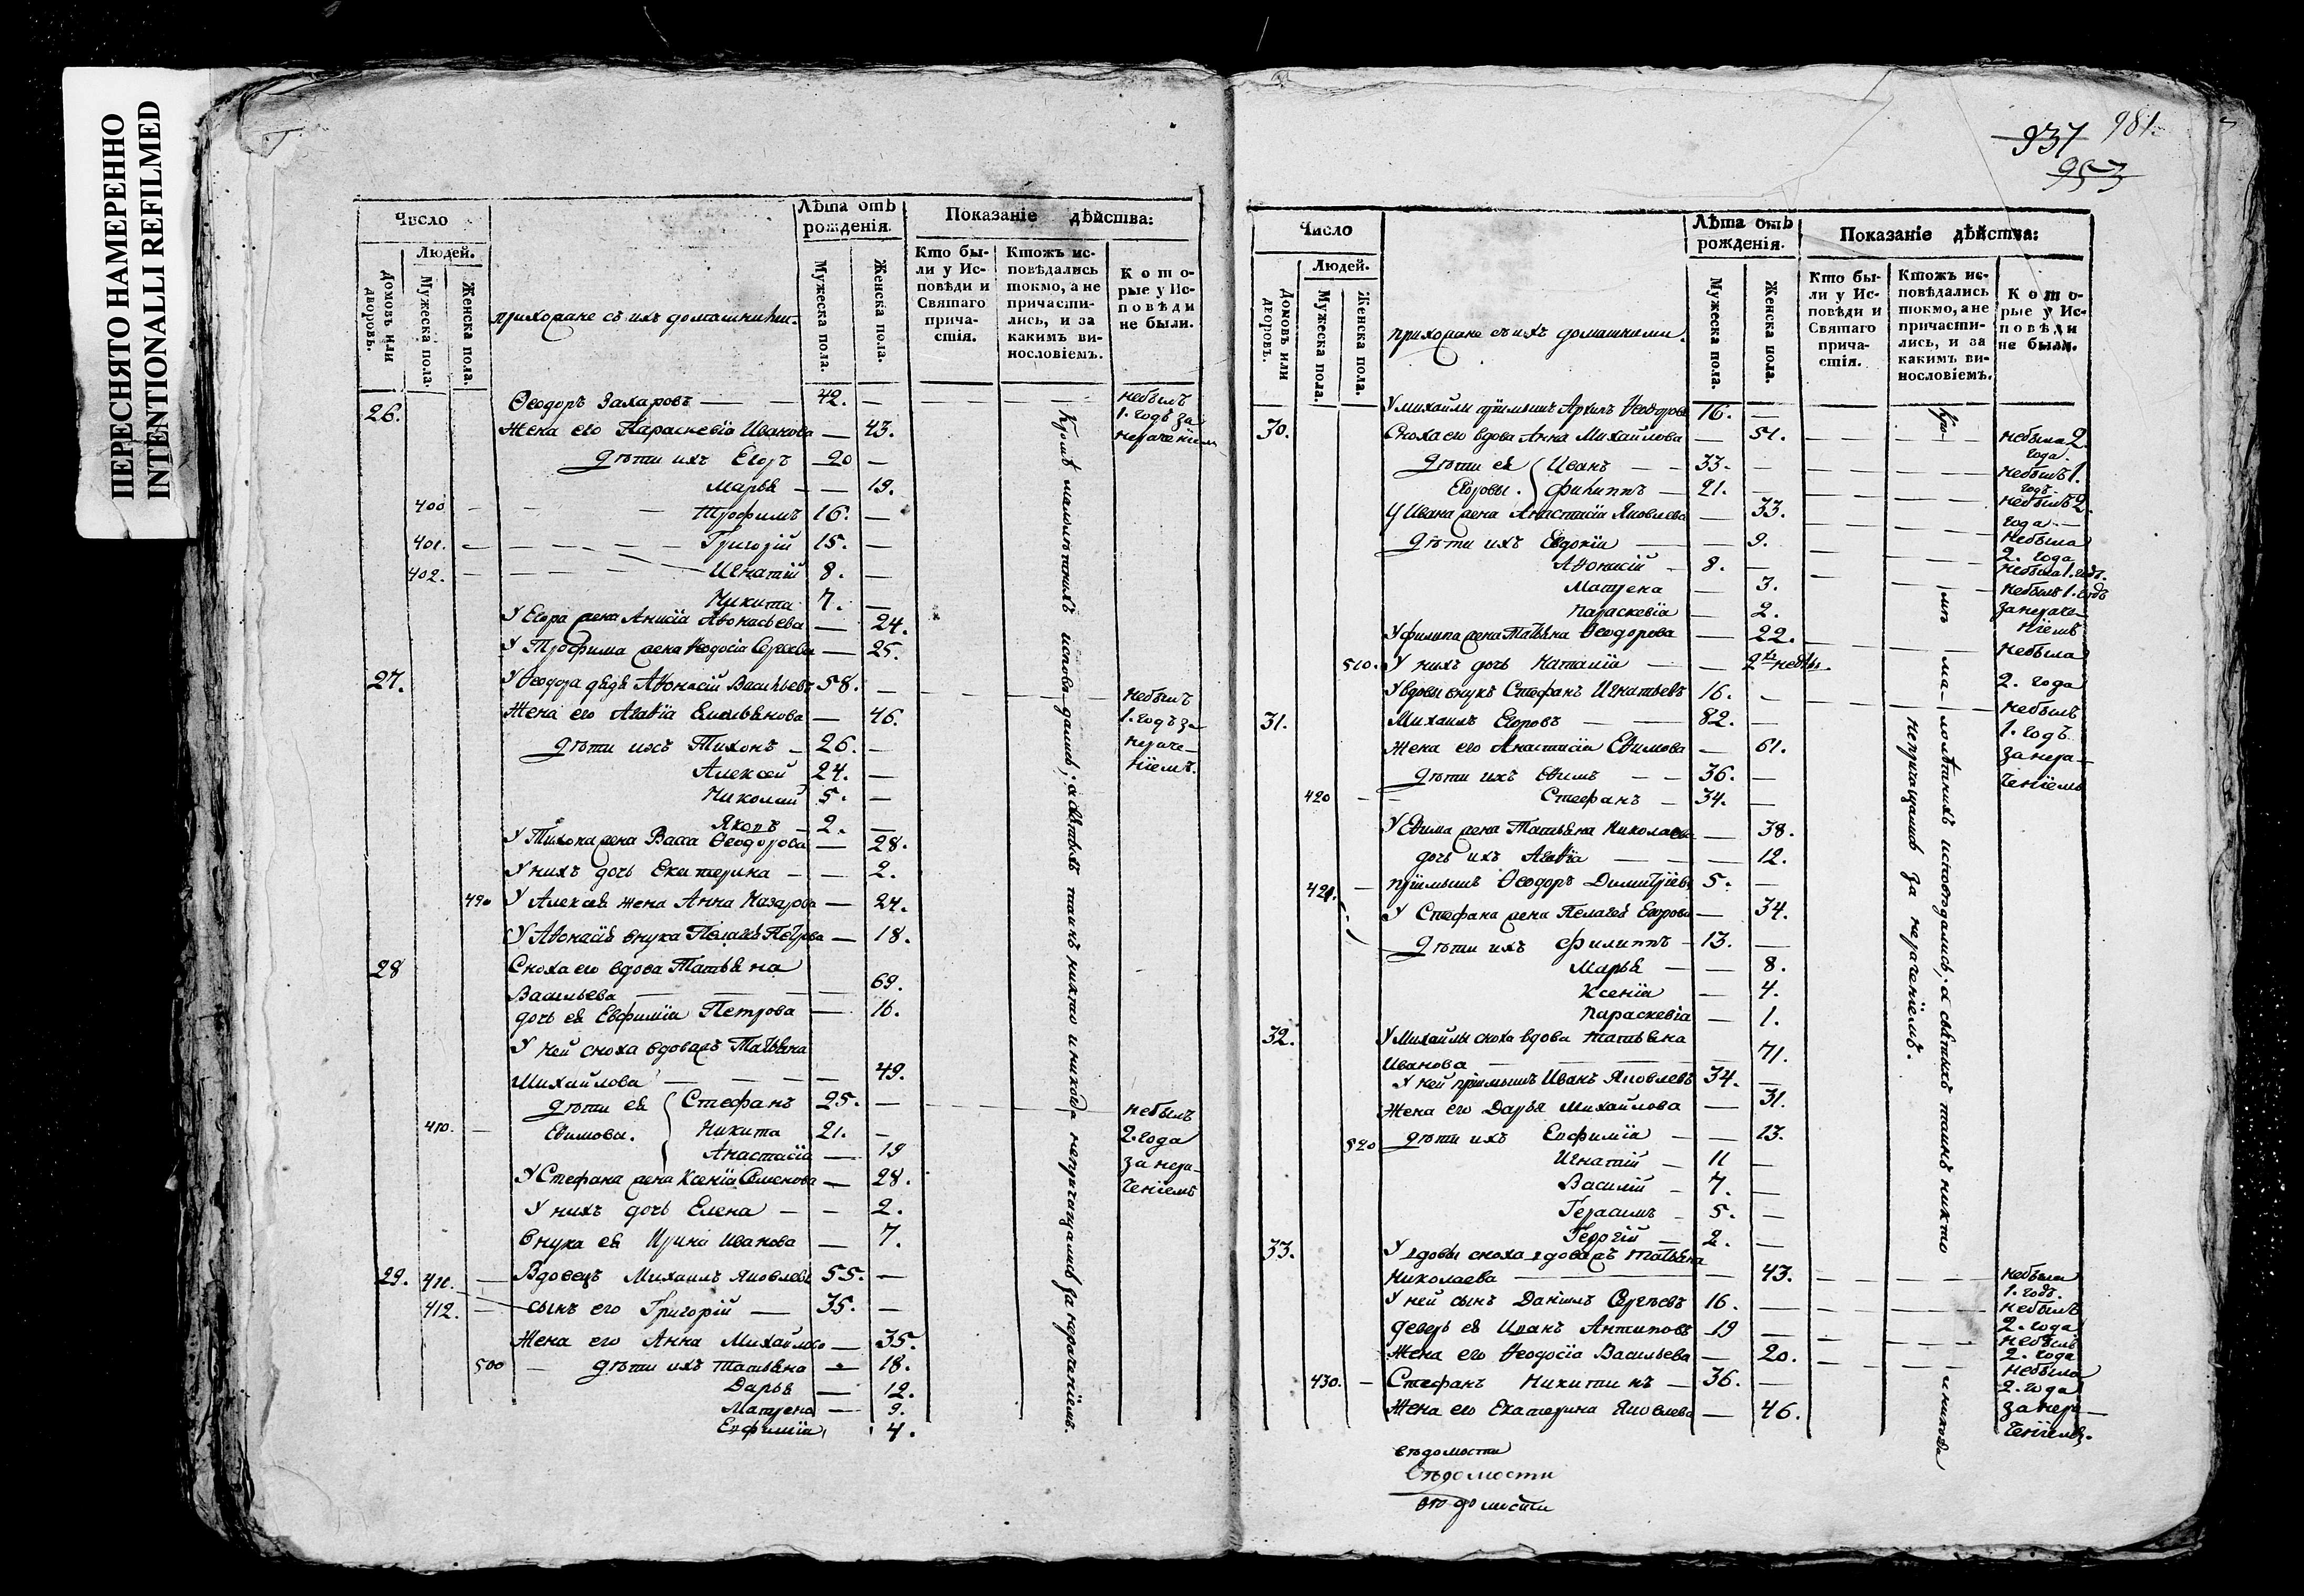 ПЕРЕСНЯТО НАМЕРЕННО
INTENTIONALLI REFILMED
Число
Лѣта отъ рожденія.
Показаніе дѣйства:
Людей.
Домовъ или дворовъ.
Мужеска пола.
Женска пола.
прихожане съ ихъ домашними.
Мужеска пола.
Женска пола.
Кто были у Исповѣди и Святаго причастія.
Ктожъ исповѣдались токмо, а не причастились, и за какимъ винословіемъ.
Которые у Исповѣди не были.
26. Ѳеодоръ Захаровъ — 42. — небылъ 1. годъ за нераченіем
Жена его Параскевіа Иванова — 43.
дѣти ихъ Егоръ 20 —
Марья — 19.
400 Трофимъ 16. —
401. Григорій 15. —
402. Игнатій 8. —
Никита 7. —
У Егора жена Анисіа Аѳонасьева — 24.
У Трофима жена Ѳеодосіа Сергѣева — 25.
27. У Ѳеодора дядя Аѳонасій Васильевъ 58. — небылъ 1. годъ за нераченіемъ.
Жена его Агаѳіа Емельянова — 46.
дѣти ихъ Тихонъ — 26. —
Алексей 24. —
Николай 5. —
Яковъ — 2. —
У Тихона жена Васса Ѳеодорова — 28.
У нихъ дочь Екатерина — 2.
490 У Алексея жена Анна Назарова — 24.
У Аѳонасія внука Пелагея Петрова — 18.
28 Сноха его вдова Татьяна
Васильева — 69.
дочь ея Евфиміа Петрова — 16.
У ней сноха вдова жъ Татьяна
Михайлова — 49.
дѣти ея Стефанъ 25. — небылъ 2. года за нераченіемъ
410. Еѳимовы. Никита 21. —
Анастасіа — 19
У Стефана жена Ксеніа Семенова — 28.
У нихъ дочь Елена — 2.
внука ея Ирина Иванова — 7.
29. 411. Вдовецъ Михаилъ Яковлевъ 55. —
412. сынъ его Григорій — 35. —
Жена его Анна Михайлова — 35.
500 дѣти ихъ Татьяна — 18.
Дарья — 12.
Матрена — 9.
Евфиміа, 4.
Кромѣ малолѣтнихъ исповѣдались; а святыхъ таинъ никто и никогда непричащались за нераченіемъ.
937 981.
953
Число
Лѣта отъ рожденія.
Показаніе дѣйства:
Людей.
Домовъ или дворовъ.
Мужеска пола.
Женска пола.
прихожане съ ихъ домашними.
Мужеска пола.
Женска пола.
Кто были у Исповѣди и Святаго причастія.
Ктожъ исповѣдались токмо, а не причастились, и за какимъ винословіемъ.
Которые у Исповѣди не были.
У михайли пріимышъ Ѳеодоровъ 16. —
30. Сноха его вдова Анна Михайлова — 51. небыла 2. года.
дѣти ея Иванъ — 33. — небылъ 1. годъ.
Егоровы. Филиппъ — 21. небылъ 2. года —
У Ивана жена Анастасіа Яковлева — 33. небыла 2. года
дѣти ихъ Евдокіа — 9. небыла 1. годъ.
Аѳонасій — 8. — небылъ 1. годъ за нераченіемъ
Матрена — 3.
Параскевіа — 2.
У филипа жена Татьяна Ѳеодорова — 22. небыла 2. года
510. У нихъ дочь Наталіа — 2хъ недѣль.
У вдовы внукъ Стефанъ Игнатьевъ 16. — небылъ 1. годъ за нераченіемъ
31. Михаилъ Егоровъ — 82. —
Жена его Анастасіа Еѳимова — 61.
дѣти ихъ Еѳимъ — 36. —
420 Стефанъ — 34. —
У Еѳима жена Татьяна Николаева — 38.
дочь ихъ Агаѳіа — 12.
421. пріимышъ Ѳеодоръ Димитріевъ 5. —
У Стефана жена Пелагея Егорова — 34.
дѣти ихъ филиппъ — 13. —
Марья — 8.
Ксеніа — 4.
Параскевіа — 1.
32. У Михайлы сноха вдова Татьяна
Иванова — 71.
У ней пріимышъ Иванъ Яковлевъ 34. —
Жена его Дарья Михайлова — 31.
520 дѣти ихъ Евфиміа — 13.
Игнатій — 11 —
Василій — 7. —
Герасимъ — 5. —
Георгій — 2. —
33. У вдовы сноха вдова жъ Татьяна
Николаева — 43. небыла 1. годъ.
У ней сынъ Даніилъ Сергѣевъ 16. — небылъ 2. года
деверь ея Иванъ Антиповъ 19 — небылъ 2. года
Жена его Ѳеодосіа Васильева — 20. небыла 2. года за нераченіемъ.
430. Стефанъ Никитинъ — 36. —
Жена его Екатерина Яковлева — 46.
Кромѣ малолѣтнихъ исповѣдались; а святыхъ таинъ никто и никогда
непричащались за нераченіемъ.
вѣдомости
Вѣдомости
вѣдомости